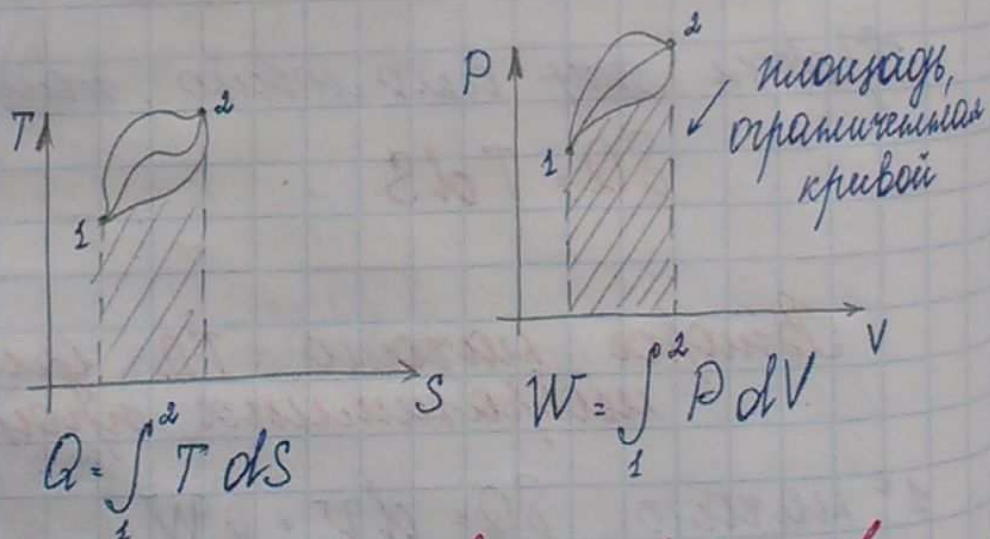 T
1
2
S
Q = ∫₁² T dS
P
1
2
V
площадь,
ограниченная
кривой
W = ∫₁² P dV